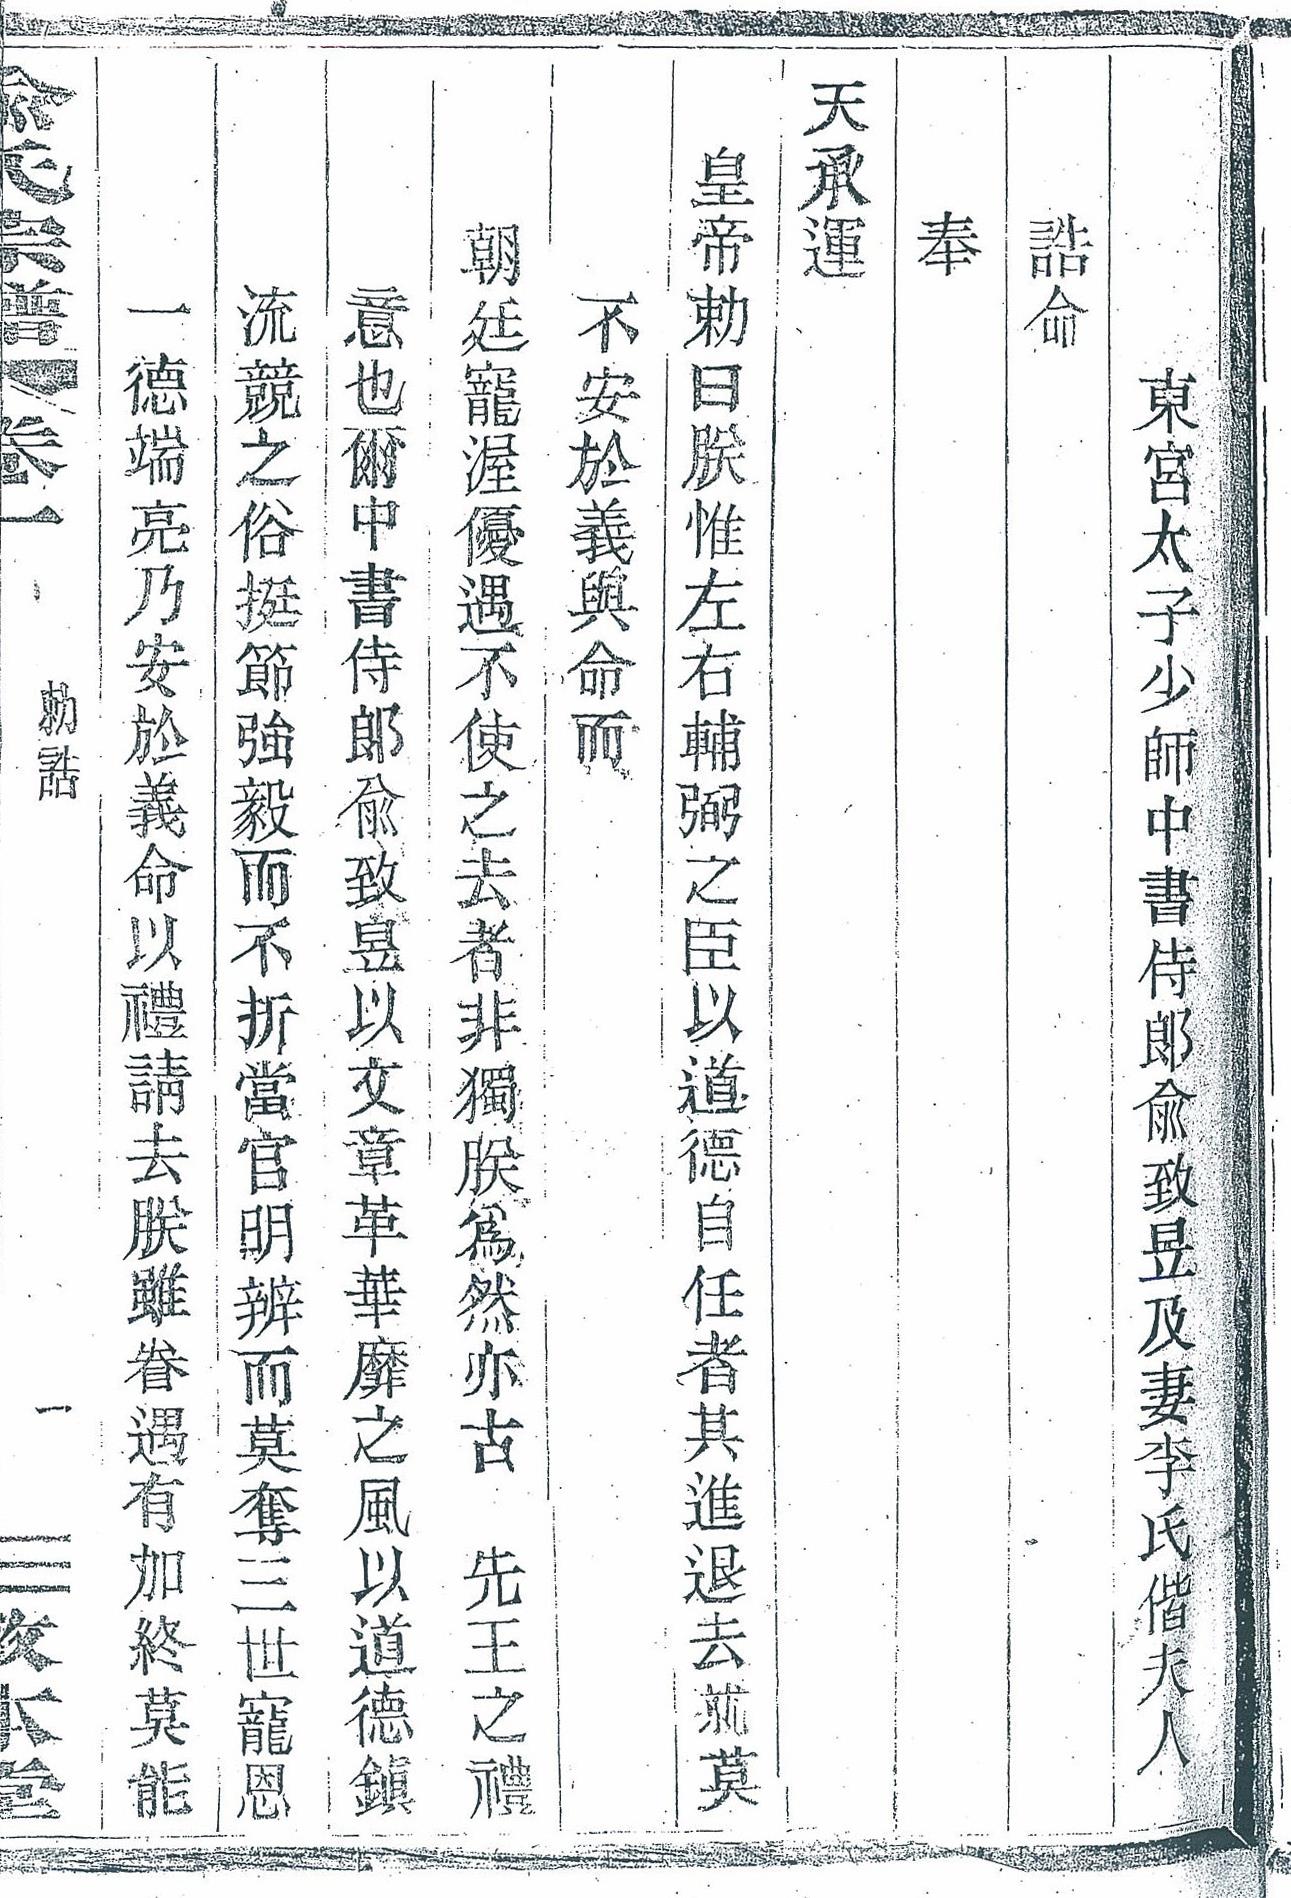 東宮太子少師中書侍郎俞致昱及妻李氏偕夫人
誥命
奉
天承運
皇帝勅曰朕惟左右輔弼之臣以道德自任者其進退去就莫
不安於義與命而
朝廷寵渥優遇不使之去者非獨朕爲然亦古　先王之禮
意也爾中書侍郎俞致昱以文章革華靡之風以道德鎮
流競之俗挺節強毅而不折當官明辨而莫奪三世寵恩
一德端亮乃安於義命以禮請去朕雖眷遇有加終莫能
俞氏宗譜 卷一 勅誥 一 敦本堂